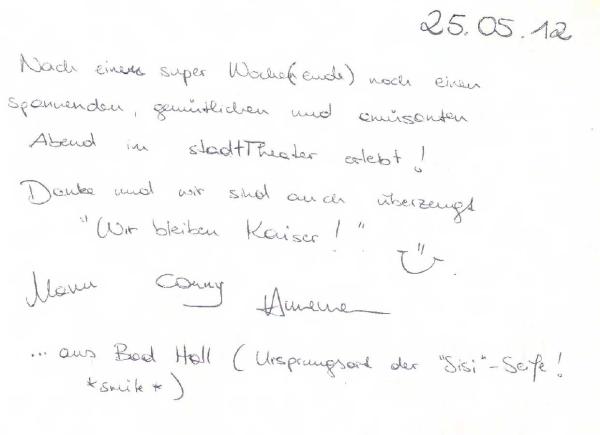 25.05.12
Nach einem super Woche(nende) noch einen
spannenden, gemütlichen und amüsanten
Abend im stadtTheater erlebt!
Danke und wir sind auch überzeugt
"Wir bleiben Kaiser!"
Conny
... aus Bad Hall (Ursprungsort der "Sisi"-Seife!
*smile*)